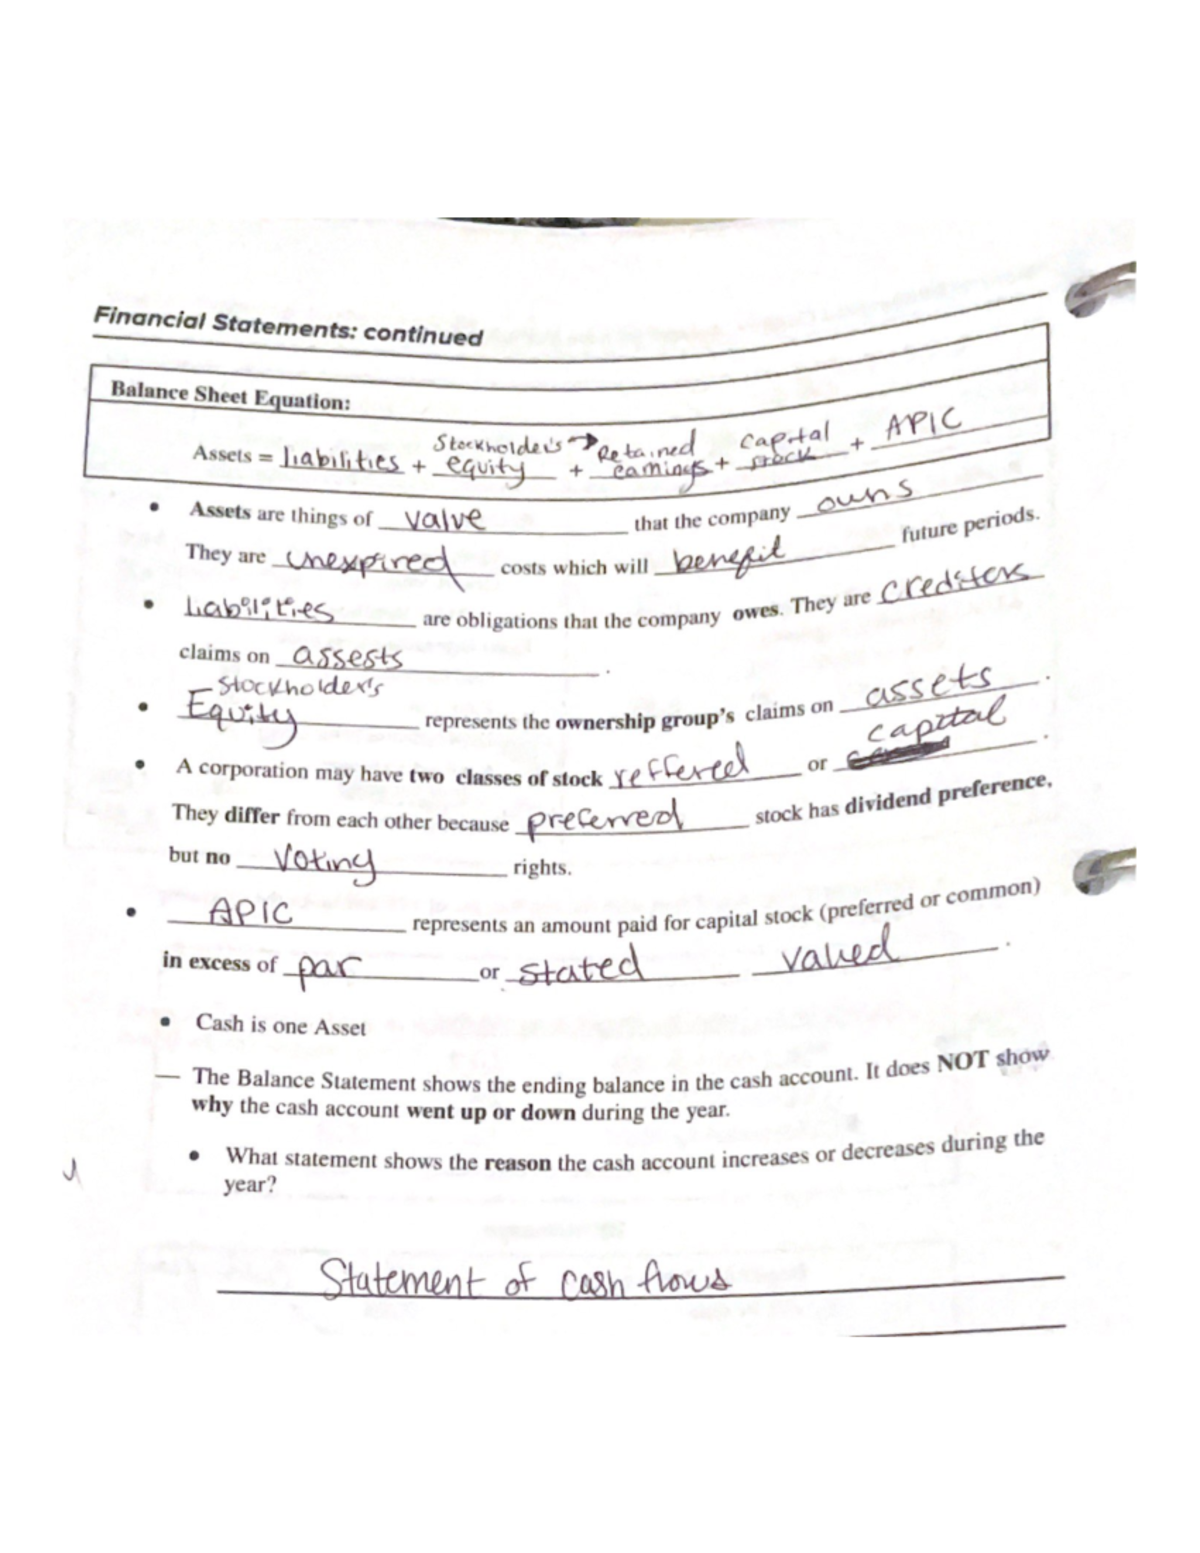 Financial Statements: continued
Balance Sheet Equation:
Assets = Liabilities + Stockholder's equity → + Retained earnings + Capital stock + APIC
• Assets are things of value that the company owns
They are unexpired costs which will benefit future periods.
• Liabilities are obligations that the company owes. They are creditors
claims on assests.
• Stockholder's Equity represents the ownership group's claims on assets.
• A corporation may have two classes of stock reffered or capital.
They differ from each other because preferred stock has dividend preference,
but no voting rights.
• APIC represents an amount paid for capital stock (preferred or common)
in excess of par or stated valued.
• Cash is one Asset
— The Balance Statement shows the ending balance in the cash account. It does NOT show
why the cash account went up or down during the year.
• What statement shows the reason the cash account increases or decreases during the
year?
Statement of cash flows